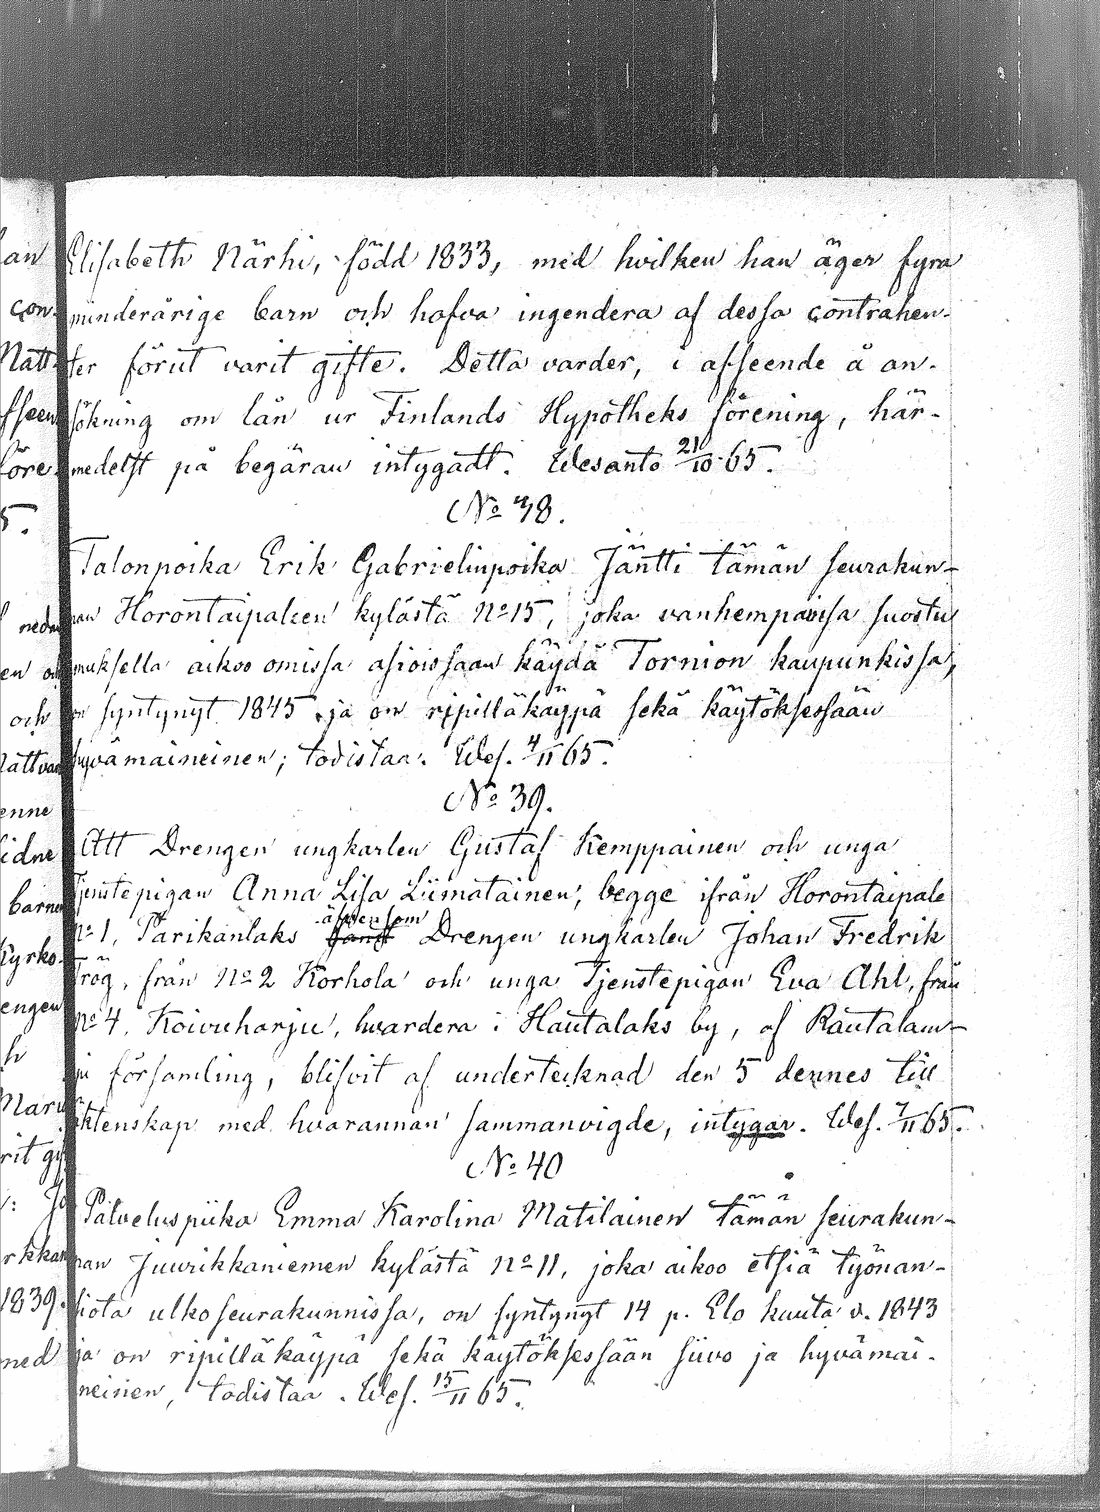 Elisabeth Närhi, född 1833, med hvilken han äger fyra
minderårige barn och hafva ingendera af dessa contrahen-
ter förut varit gifte. Detta varder, i afseende å an-
sökning om lån ur Finlands Hypotheks förening, här-
medelst på begäran intygadt. Wesanto 21/10 65.
No 38.
Talonpoika Erik Gabrielinpoika Jäntti tämän seurakun-
nan Horontaipaleen kylästä No 15, joka vanhempainsa suostu
muksella aikoo omissa asioissaan käydä Tornion kaupunkissa,
on syntynyt 1845 ja on ripilläkäypä sekä käytöksessään
hyvämaineinen; todistaa. Wes. 4/11 65.
No 39.
Att Drengen ungkarlen Gustaf Kemppainen och unga
Tjenstepigan Anna Lisa Liimatainen, begge ifrån Horontaipale
No 1, Parikanlaks äfvensom Drengen ungkarlen Johan Fredrik
Trög, från No 2 Korhola och unga Tjenstepigan Eva Ahl, från
No 4, Koivuharju, hvardera i Hautalaks by, af Rautalam-
pi församling, blifvit af undertecknad den 5 dennes till
äktenskap med hvarannan sammanvigde, intygar. Wes. 7/11 65.
No 40
Palveluspiika Emma Karolina Matilainen tämän seurakun-
nan Juurikkaniemen kylästä No 11, joka aikoo etsiä työnan-
siota ulkoseurakunnissa, on syntynyt 14 p. Elo kuuta v. 1843
ja on ripilläkäypä sekä käytöksessään siivo ja hyvämai-
neinen, todistaa. Wes. 15/11 65.